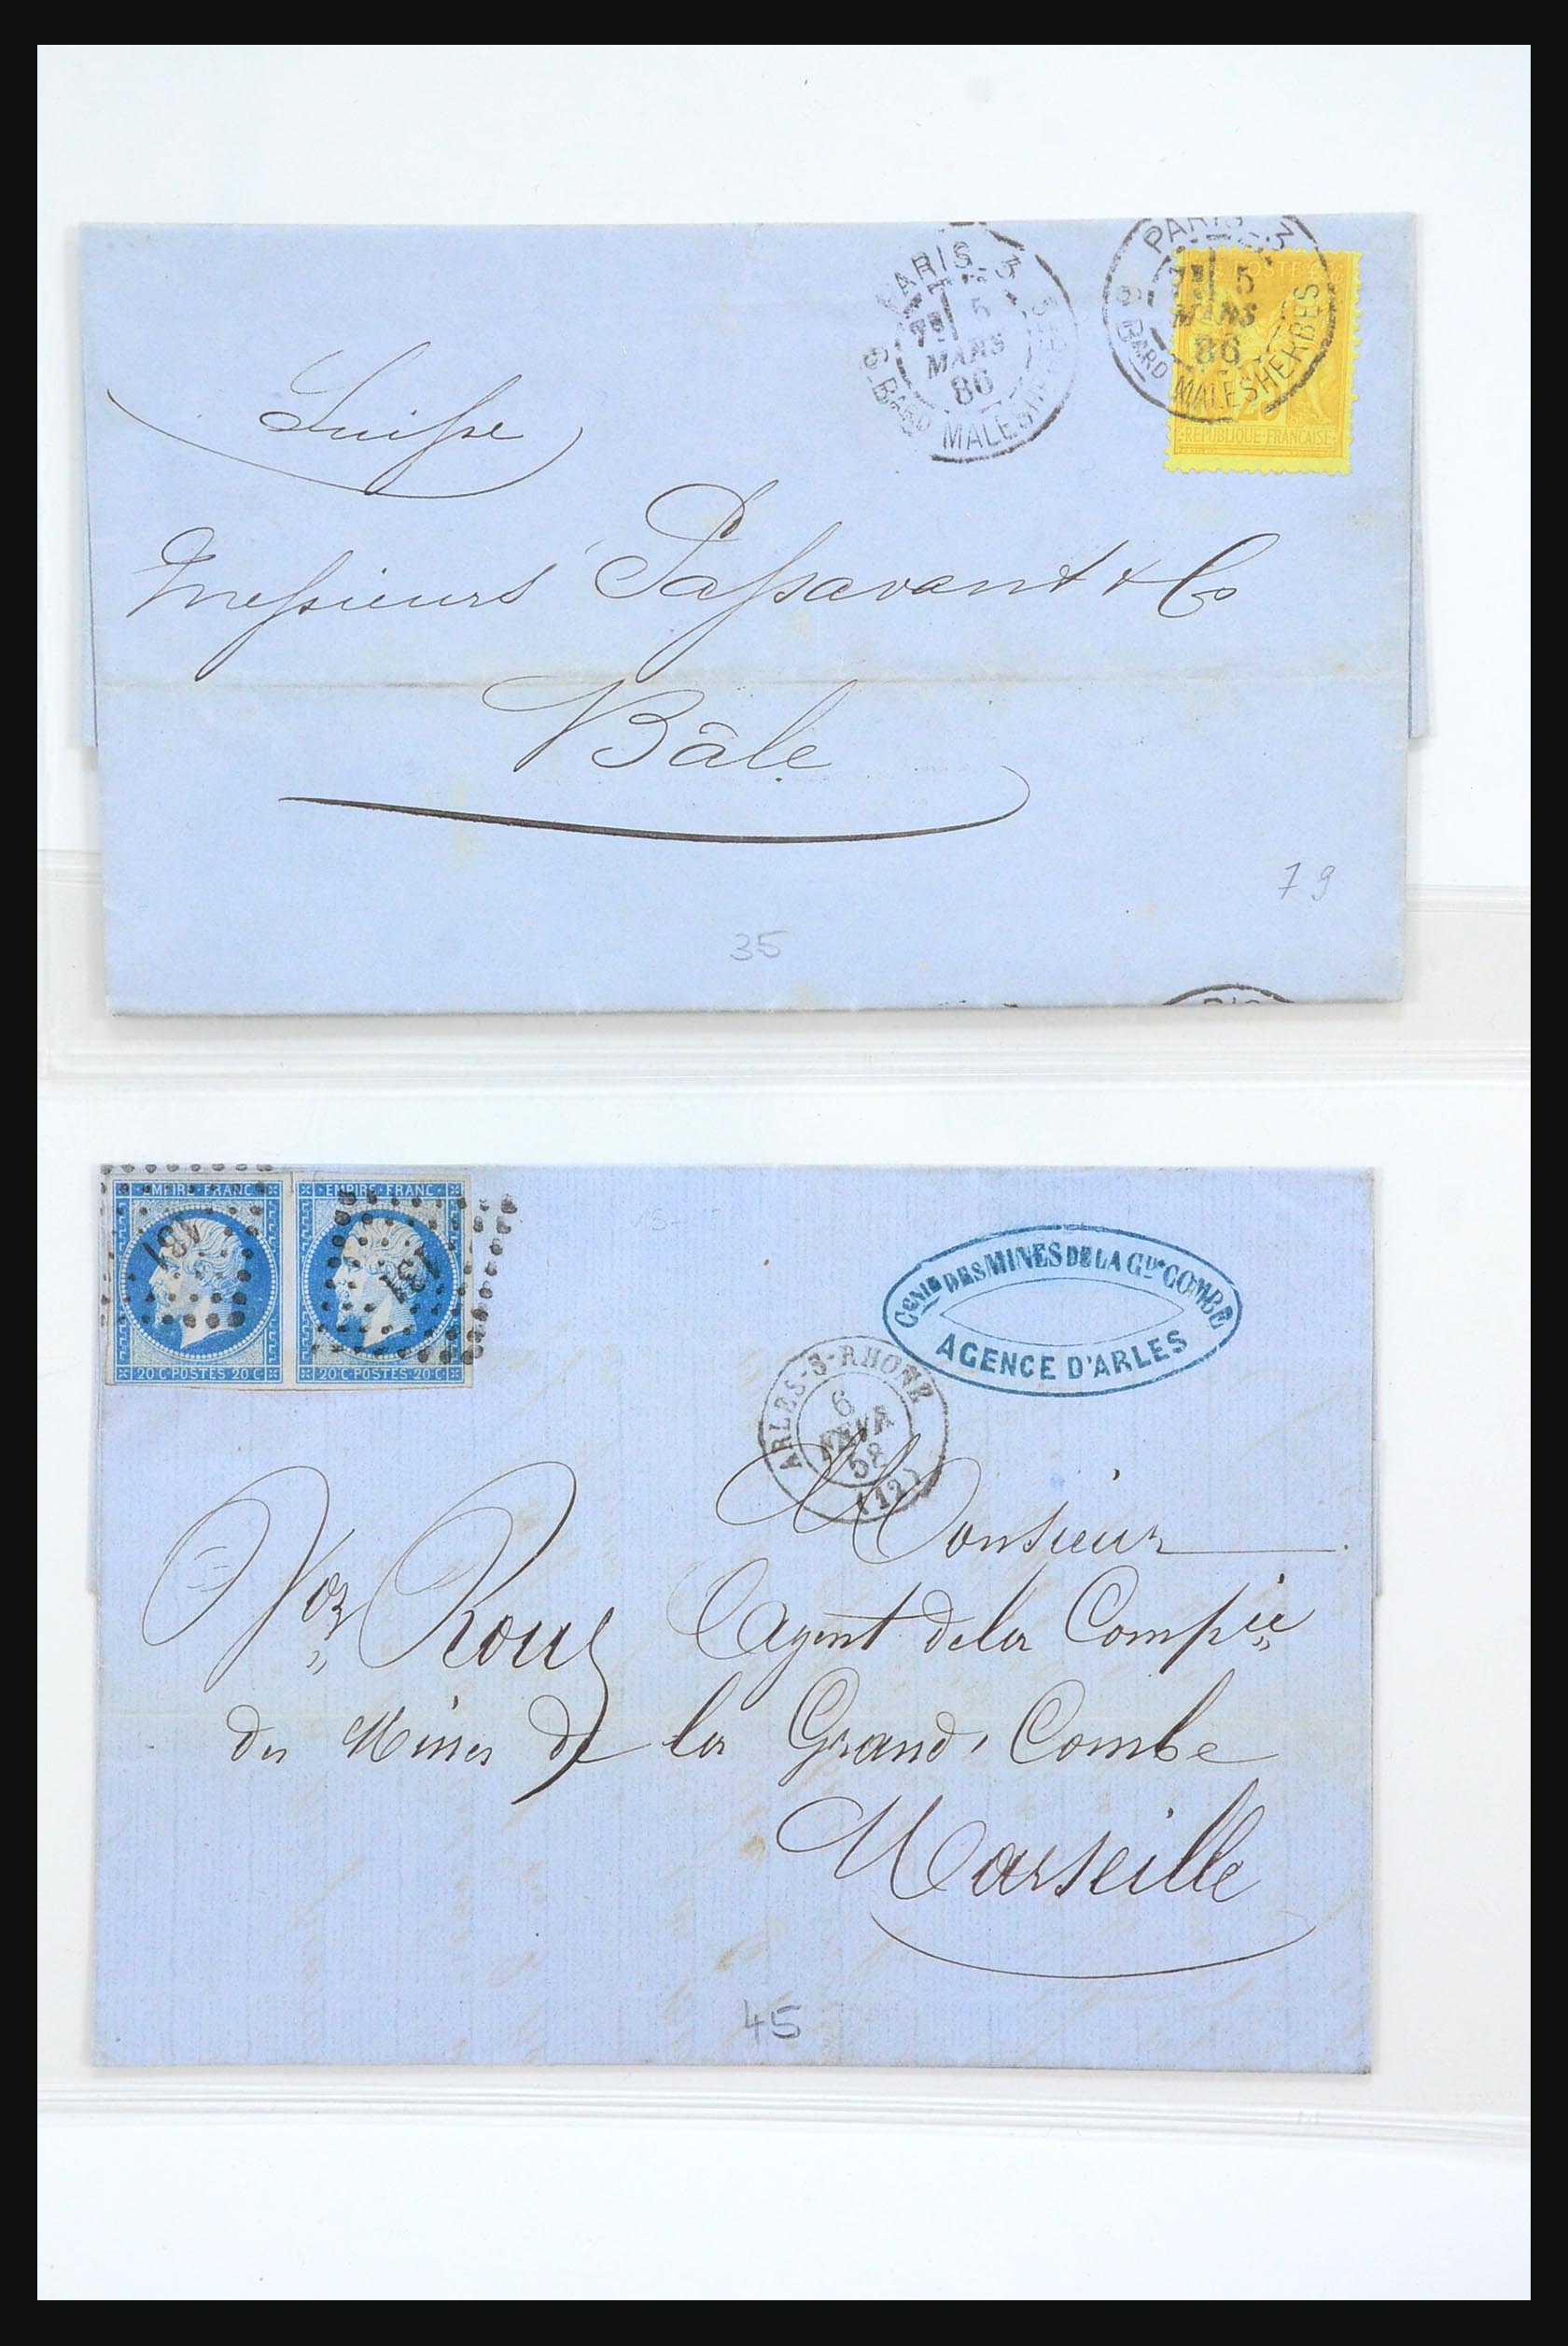 PARIS - 3
7E 5
MARS
86
6. BARD MALESHERBES
PARIS - 3
7E 5
MARS
86
6. BARD MALESHERBES
POSTE
25
RÉPUBLIQUE FRANÇAISE
Suisse
Messieurs Passavant & Co
Bâle
79
35
EMPIRE FRANC
EMPIRE FRANC
131
20 C POSTES 20 C
20 C POSTES 20 C
Cgnie DES MINES DE LA Gde COMBE
AGENCE D'ARLES
ARLES-S-RHONE
6
FEVR
58
(12)
Monsieur
Vor Roux Agent de la Compie
des Mines de la Grand'Combe
Marseille
45